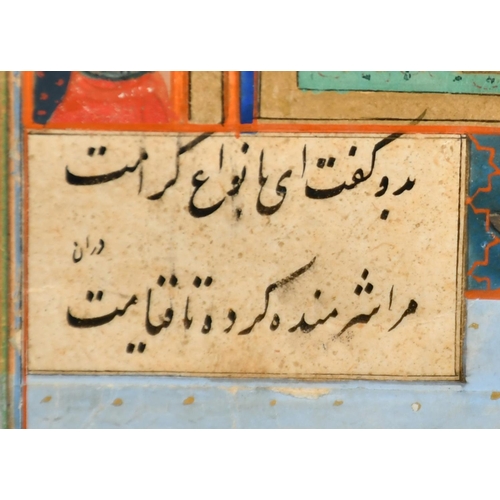 بدو گفت ای بانواع کرامت
مرا شرمنده کرده تا قیامت
دران